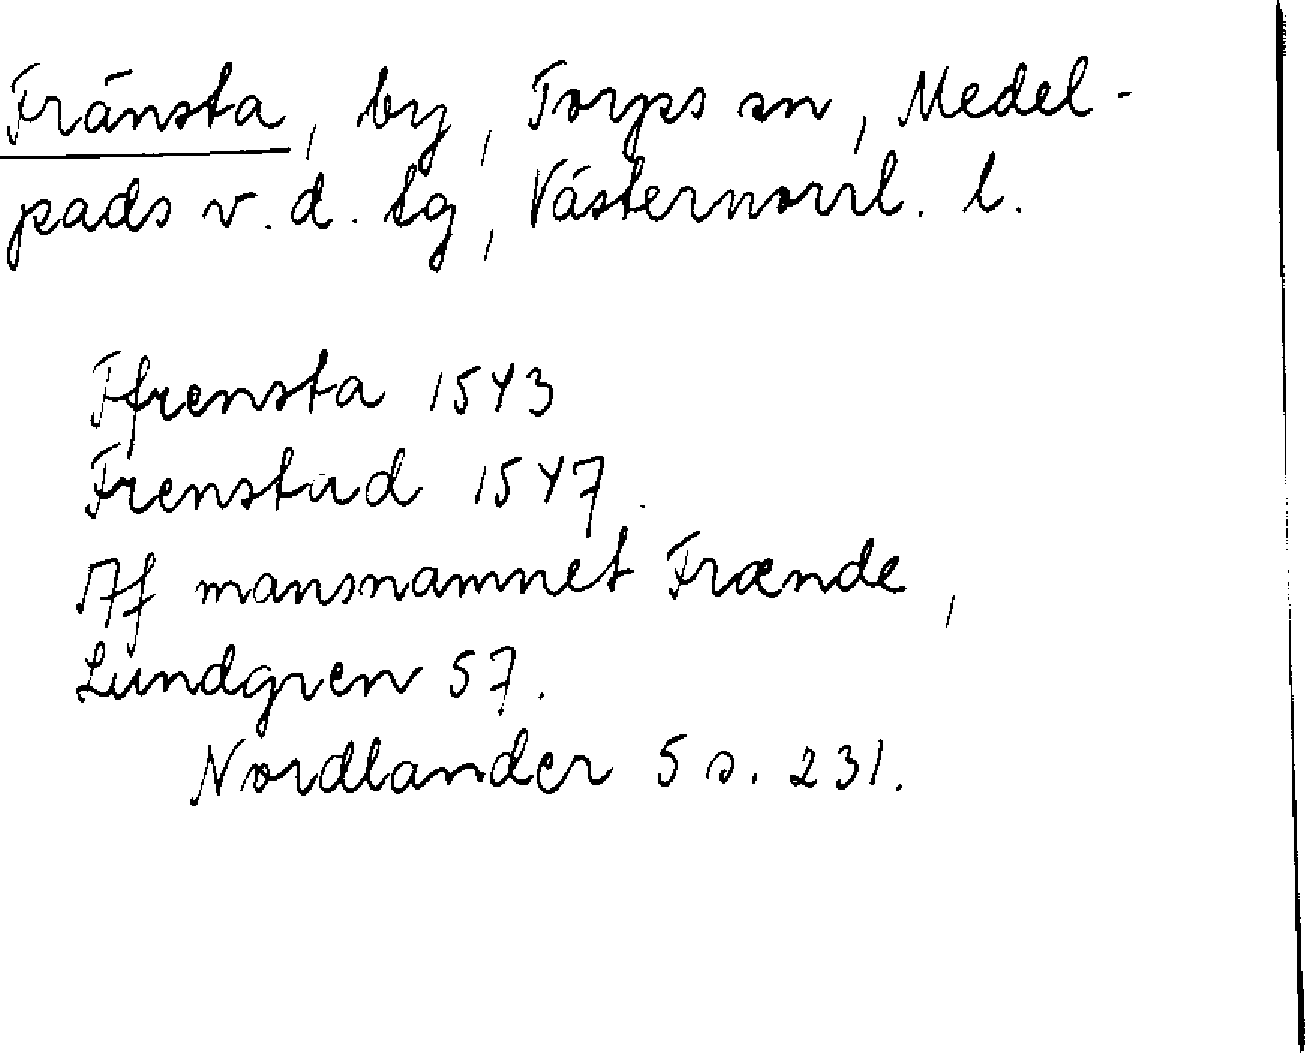 Fränsta, by, Torps sn, Medel-
pads v. d. tg, Västernorrl. l.
Ffrensta 1543
Frenstad 1547.
Af mansnamnet Frænde,
Lundgren 57.
Nordlander 5 s. 231.